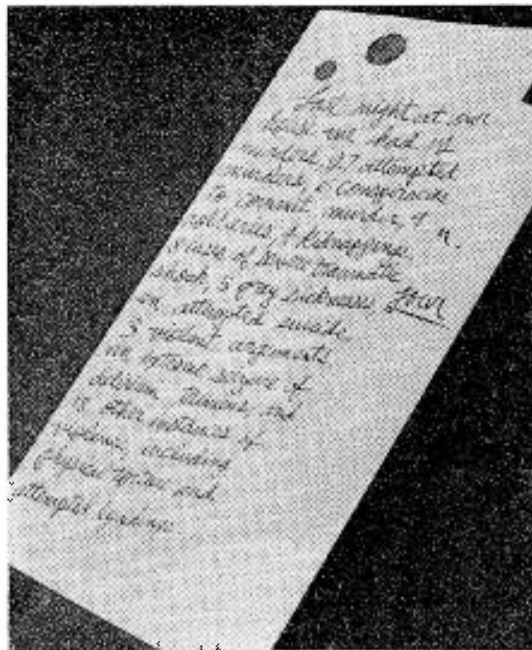 Last night at our
house we had 14
murders, 27 attempted
murders, 6 conspiracies
to commit murder, 4
robberies, 4 kidnappings,
cases of traumatic
shock, 5 sickness, four
an attempted suicide
5 violent arguments
an extreme seizure of
delirium tremens and
18 other instances of
violence, including
physical torture and
attempted